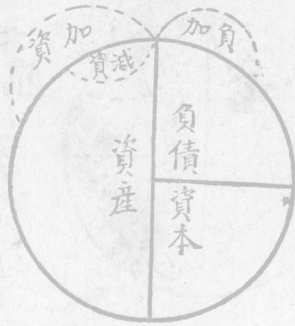 加資
減資
加負
資産
負債
資本